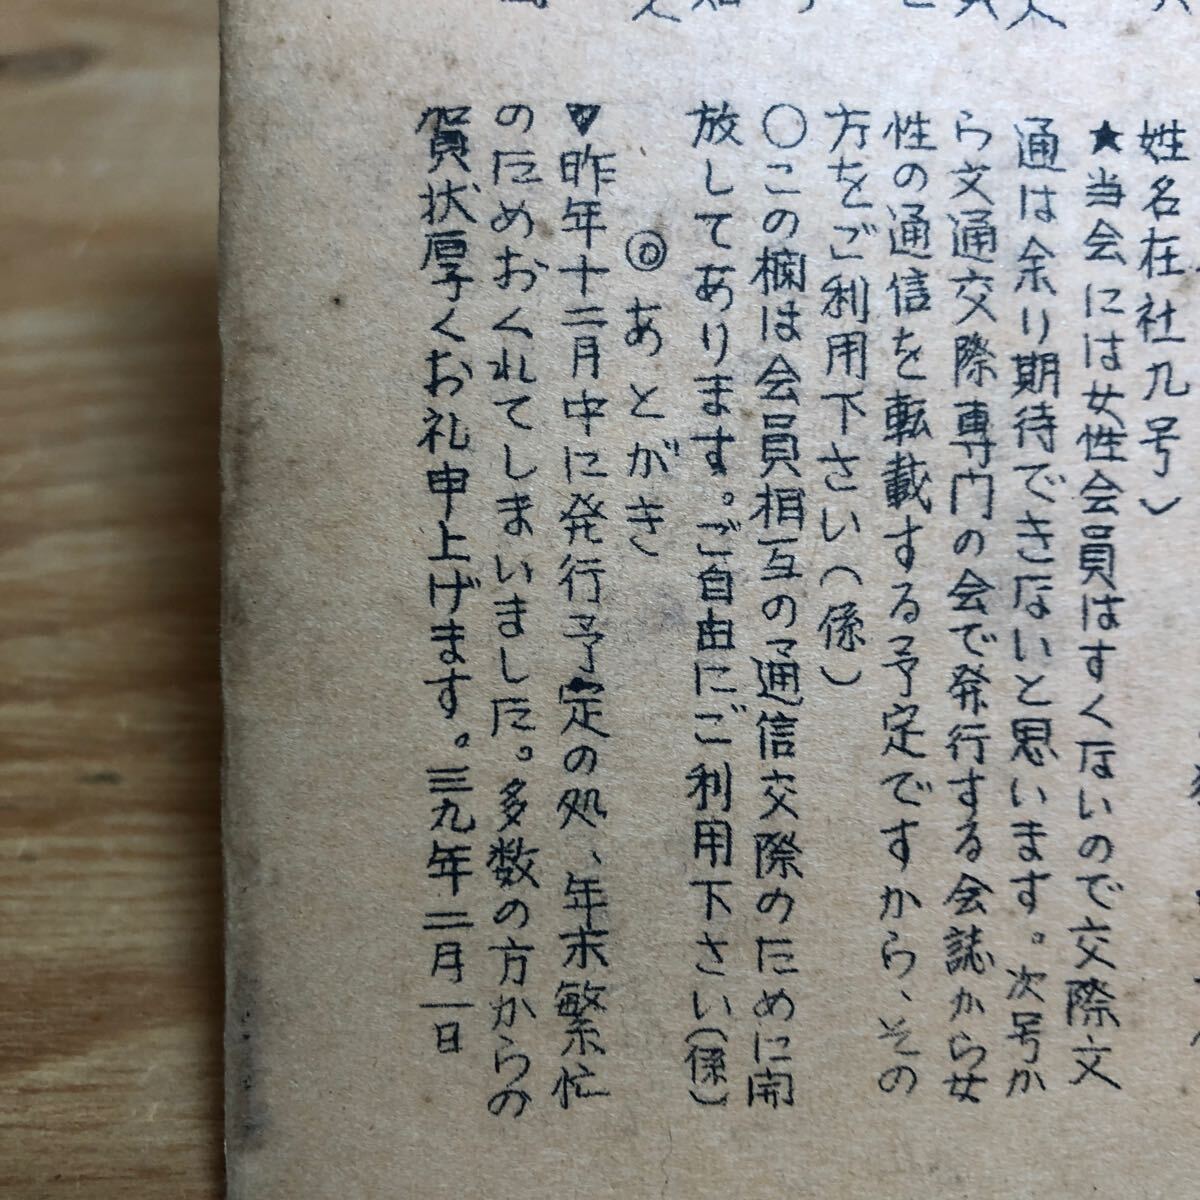 姓名在社九号〉
★当会には女性会員はすくないので交際文
通は余り期待できないと思います。次号か
ら文通交際専門の会で発行する会誌から女
性の通信を転載する予定ですから、その
方をご利用下さい(係)
○この欄は会員相互の通信交際のために開
放してあります。ご自由にご利用下さい(係)
◎あとがき
▼昨年十二月中に発行予定の処、年末繁忙
のためおくれてしまいました。多数の方からの
賀状厚くお礼申上げます。三九年二月一日